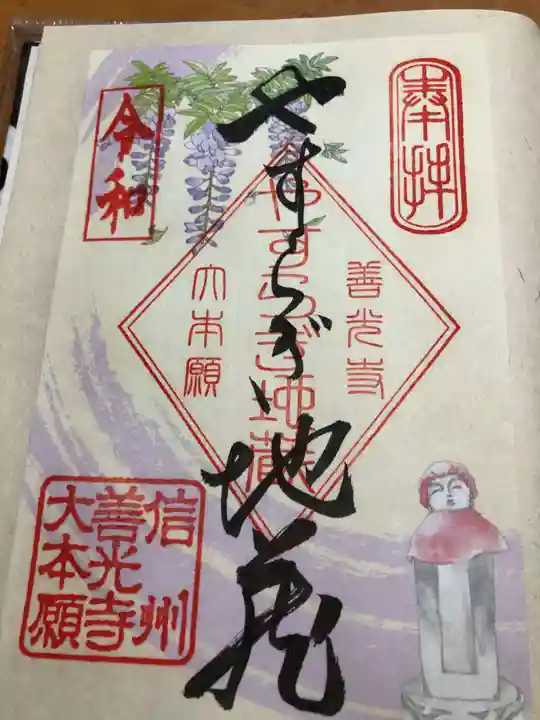 奉拝
善光寺
やすらぎ地蔵
やすらぎ地蔵
大本願
令和
信州
善光寺
大本願